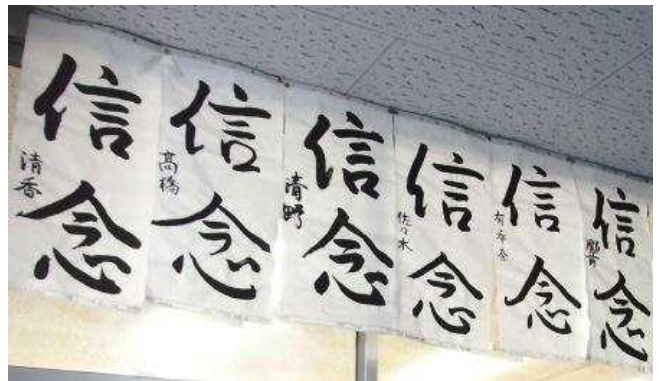 信念
清香
信念
高橋
信念
清野
信念
佐々木
信念
信念